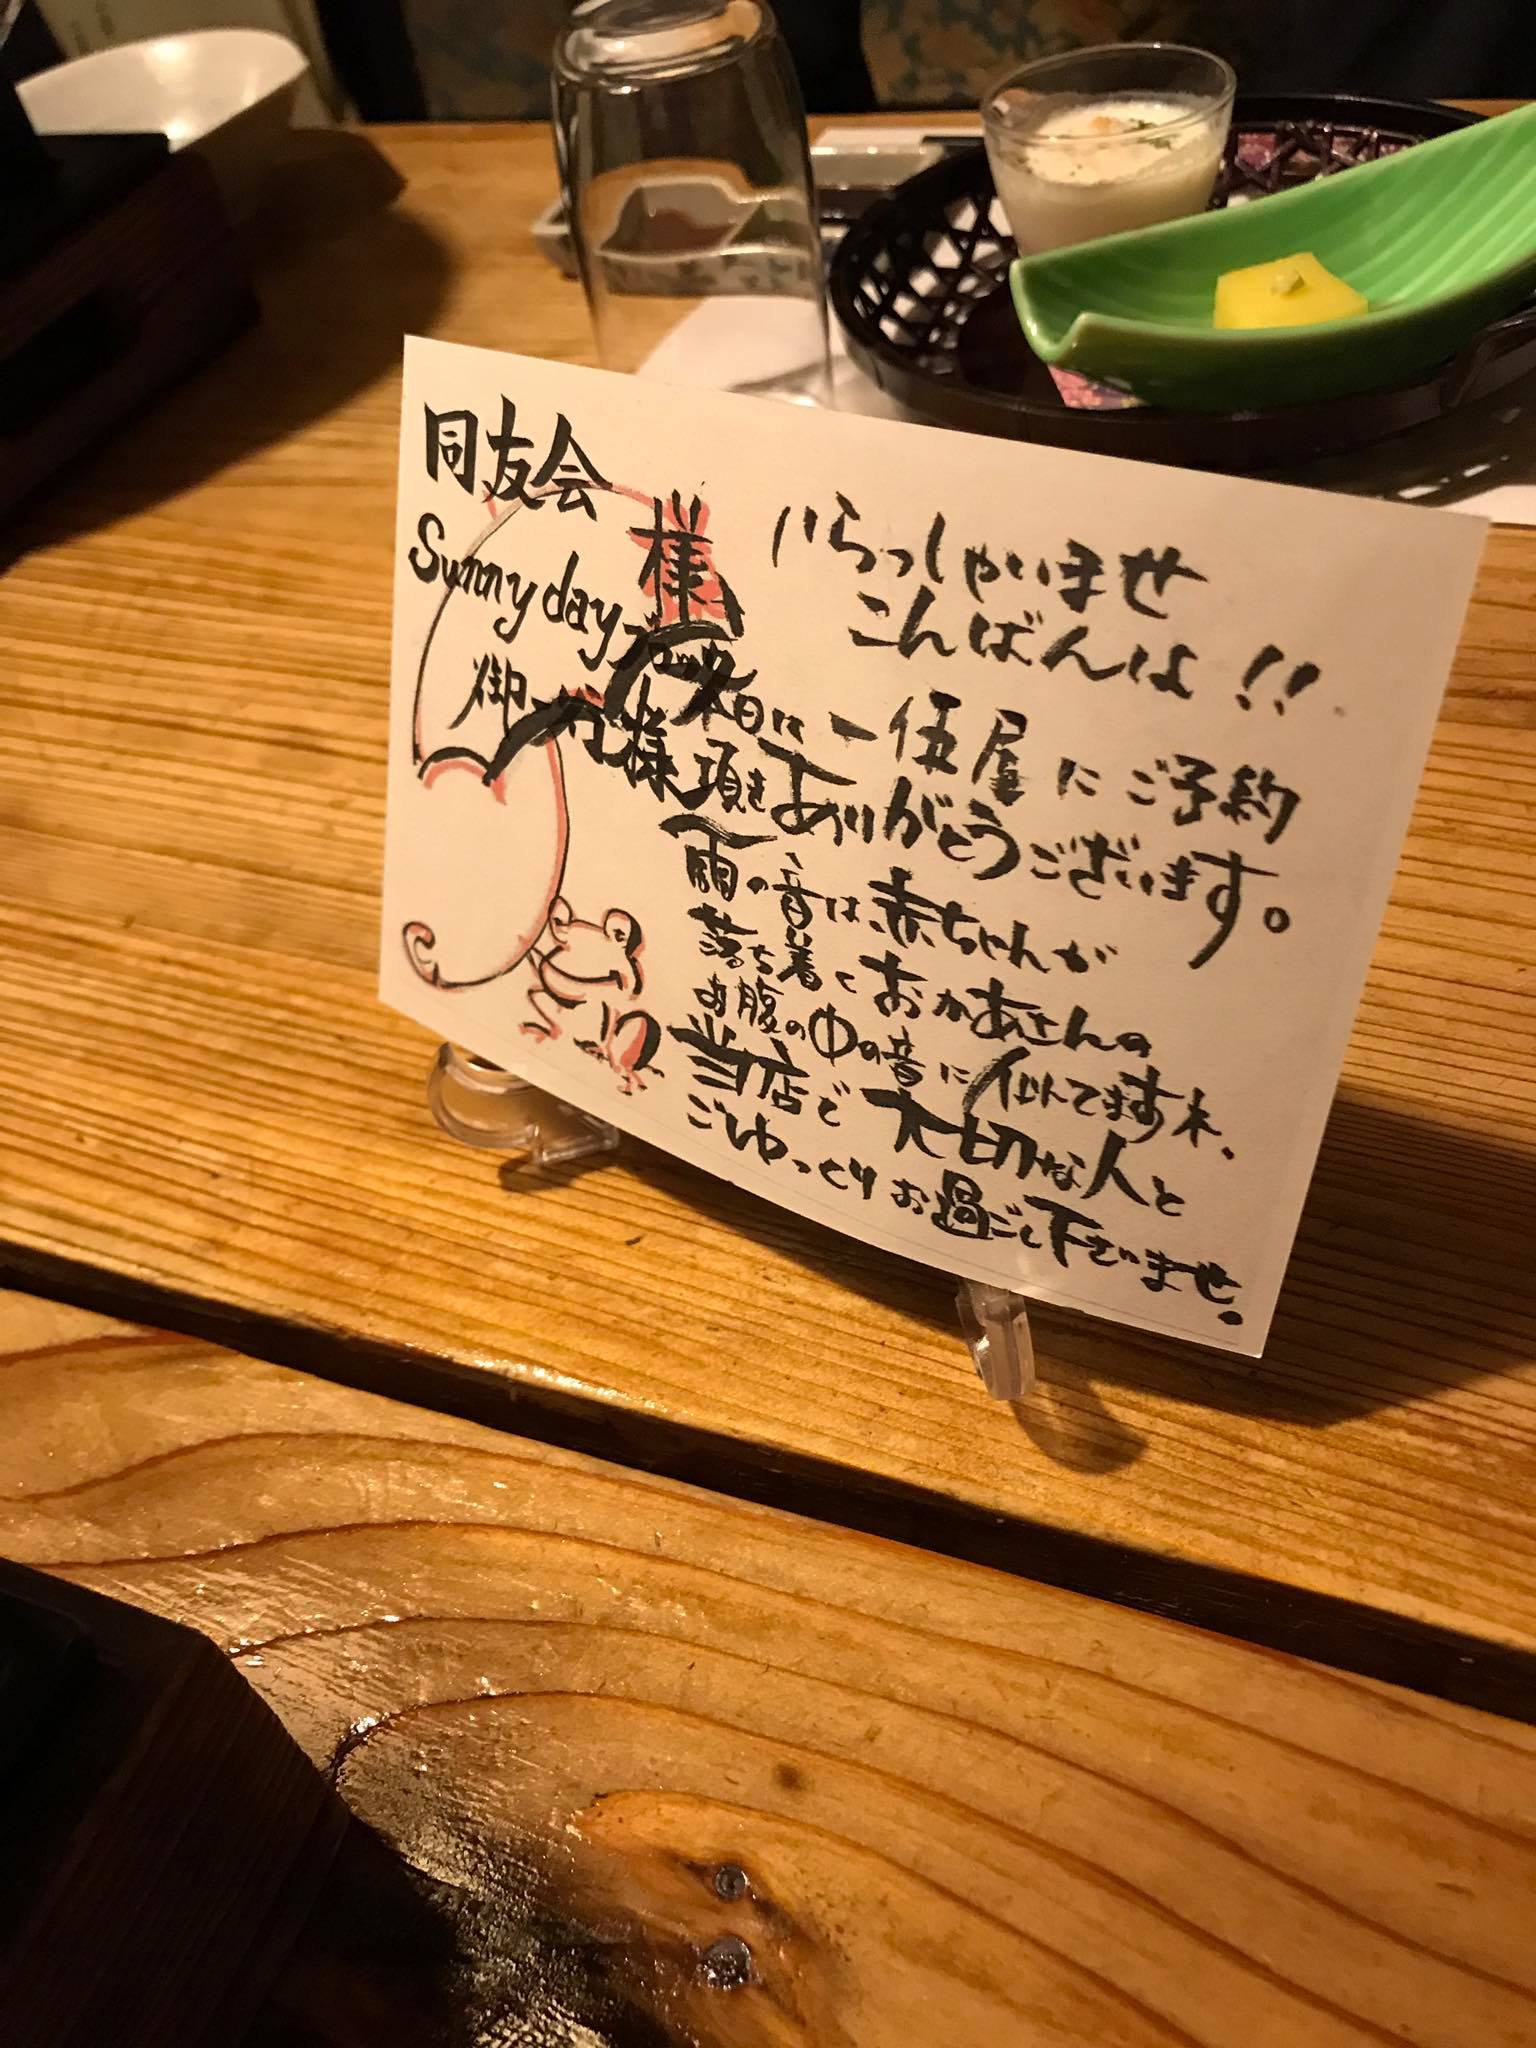 同友会 様
Sunny dayブロック
御一行様
いらっしゃいませ
こんばんは!!
本日は一伍屋にご予約
頂きありがとうございます。
雨の音は、赤ちゃんが
落ち着くおかあさんの
お腹の中の音に似てますね。
当店で大切な人と
ごゆっくりお過ごし下さいませ。